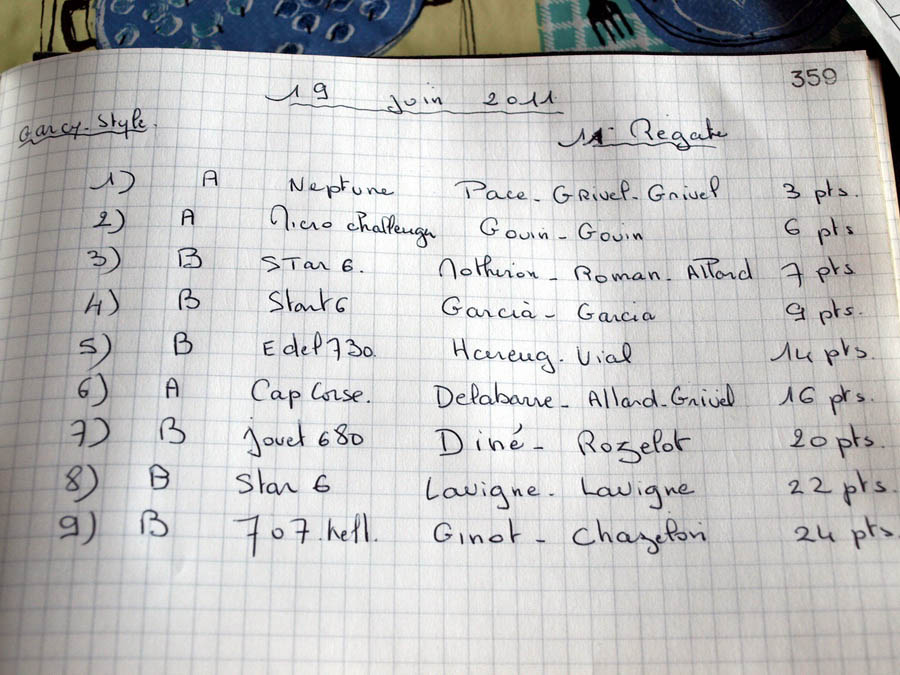 359
19 juin 2011
Garcy-Style.
11- Régate
1) A Neptune Pace - Grivel - Grivel 3 pts.
2) A Micro challenge Gouin - Gouin 6 pts
3) B STar 6. Roman - Allard 7 pts
4) B Start 6 Garcià - Garcia 9 pts.
5) B Edel 730. Hareng - Vial 14 pts.
6) A Cap Corse. Delabarre - Allard - Grivel 16 pts.
7) B Jouet 680 Diné - Rozelot 20 pts.
8) B Star 6 Lavigne - Lavigne 22 pts.
9) B 707. Ginot - Chazelon 24 pts.